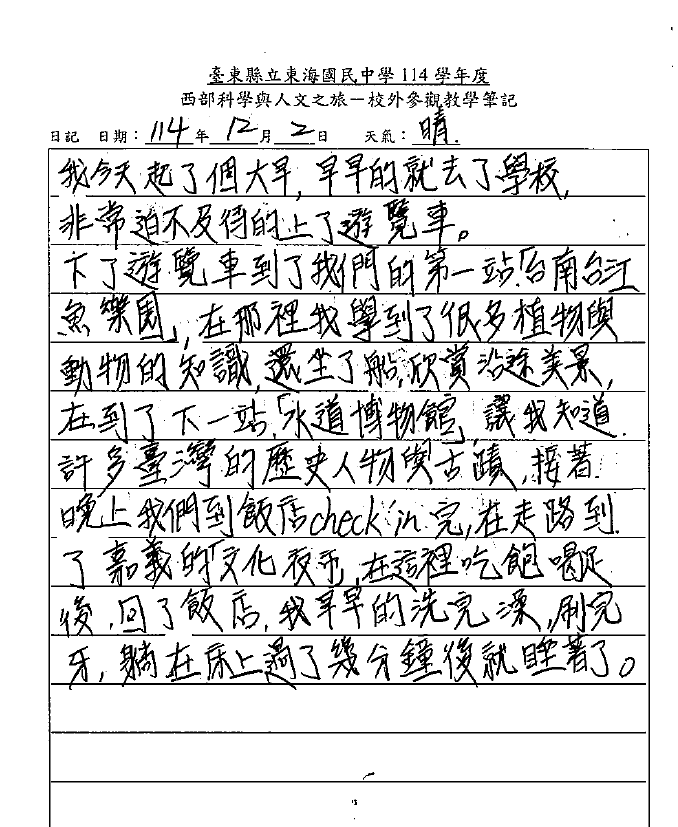 臺東縣立東海國民中學114學年度
西部科學與人文之旅－校外參觀教學筆記
日記 日期：114年12月2日 天氣：晴.
我今天起了個大早,早早的就去了學校,
非常迫不及待的上了遊覽車。
下了遊覽車到了我們的第一站「台南台江
魚樂園」,在那裡我學到了很多植物與
動物的知識,還坐了船,欣賞沿途美景,
在到了下一站,「水道博物館」讓我知道.
許多臺灣的歷史人物與古蹟,接著.
晚上我們到飯店check in完,在走路到.
了嘉義的「文化夜市」,在這裡吃飽喝足
後,回了飯店,我早早的洗完澡,刷完
牙,躺在床上過了幾分鐘後就睡著了。